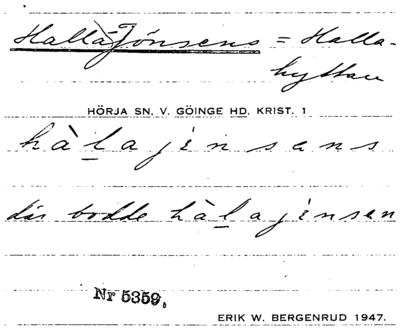 Halla Jönsens = Halla-
hyttan
HÖRJA SN. V. GÖINGE HD. KRIST. 1
hàlajinsens
där bodde hàlajinsen
Nr 5359.
ERIK W. BERGENRUD 1947.